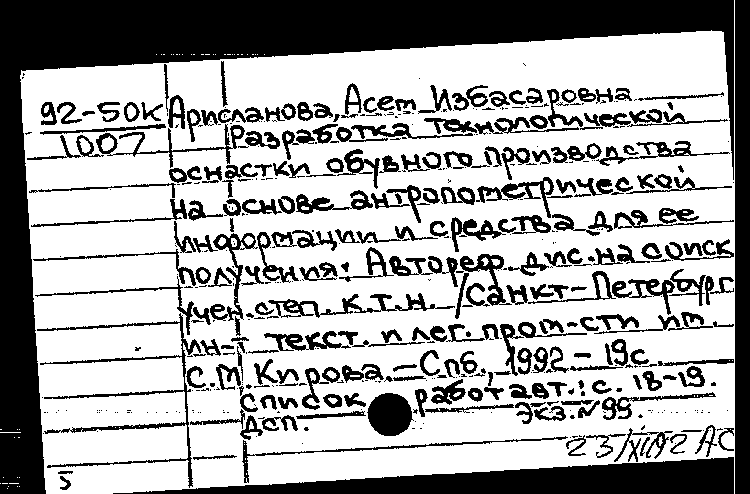 92-50К Арисланова, Асет Избасаровна
1007 Разработка технологической
оснастки обувного производства
на основе антропометрической
информации и средства для ее
получения: Автореф. дис. на соиск
учен. степ. к.т.н. /Санкт-Петербург
ин-т текст. и лег. пром-сти им.
С.М Кирова.-Спб., 1992-19с.
Список работ авт.: с. 18-19.
Дсп. Экз.№99.
23/XII92 АС
5